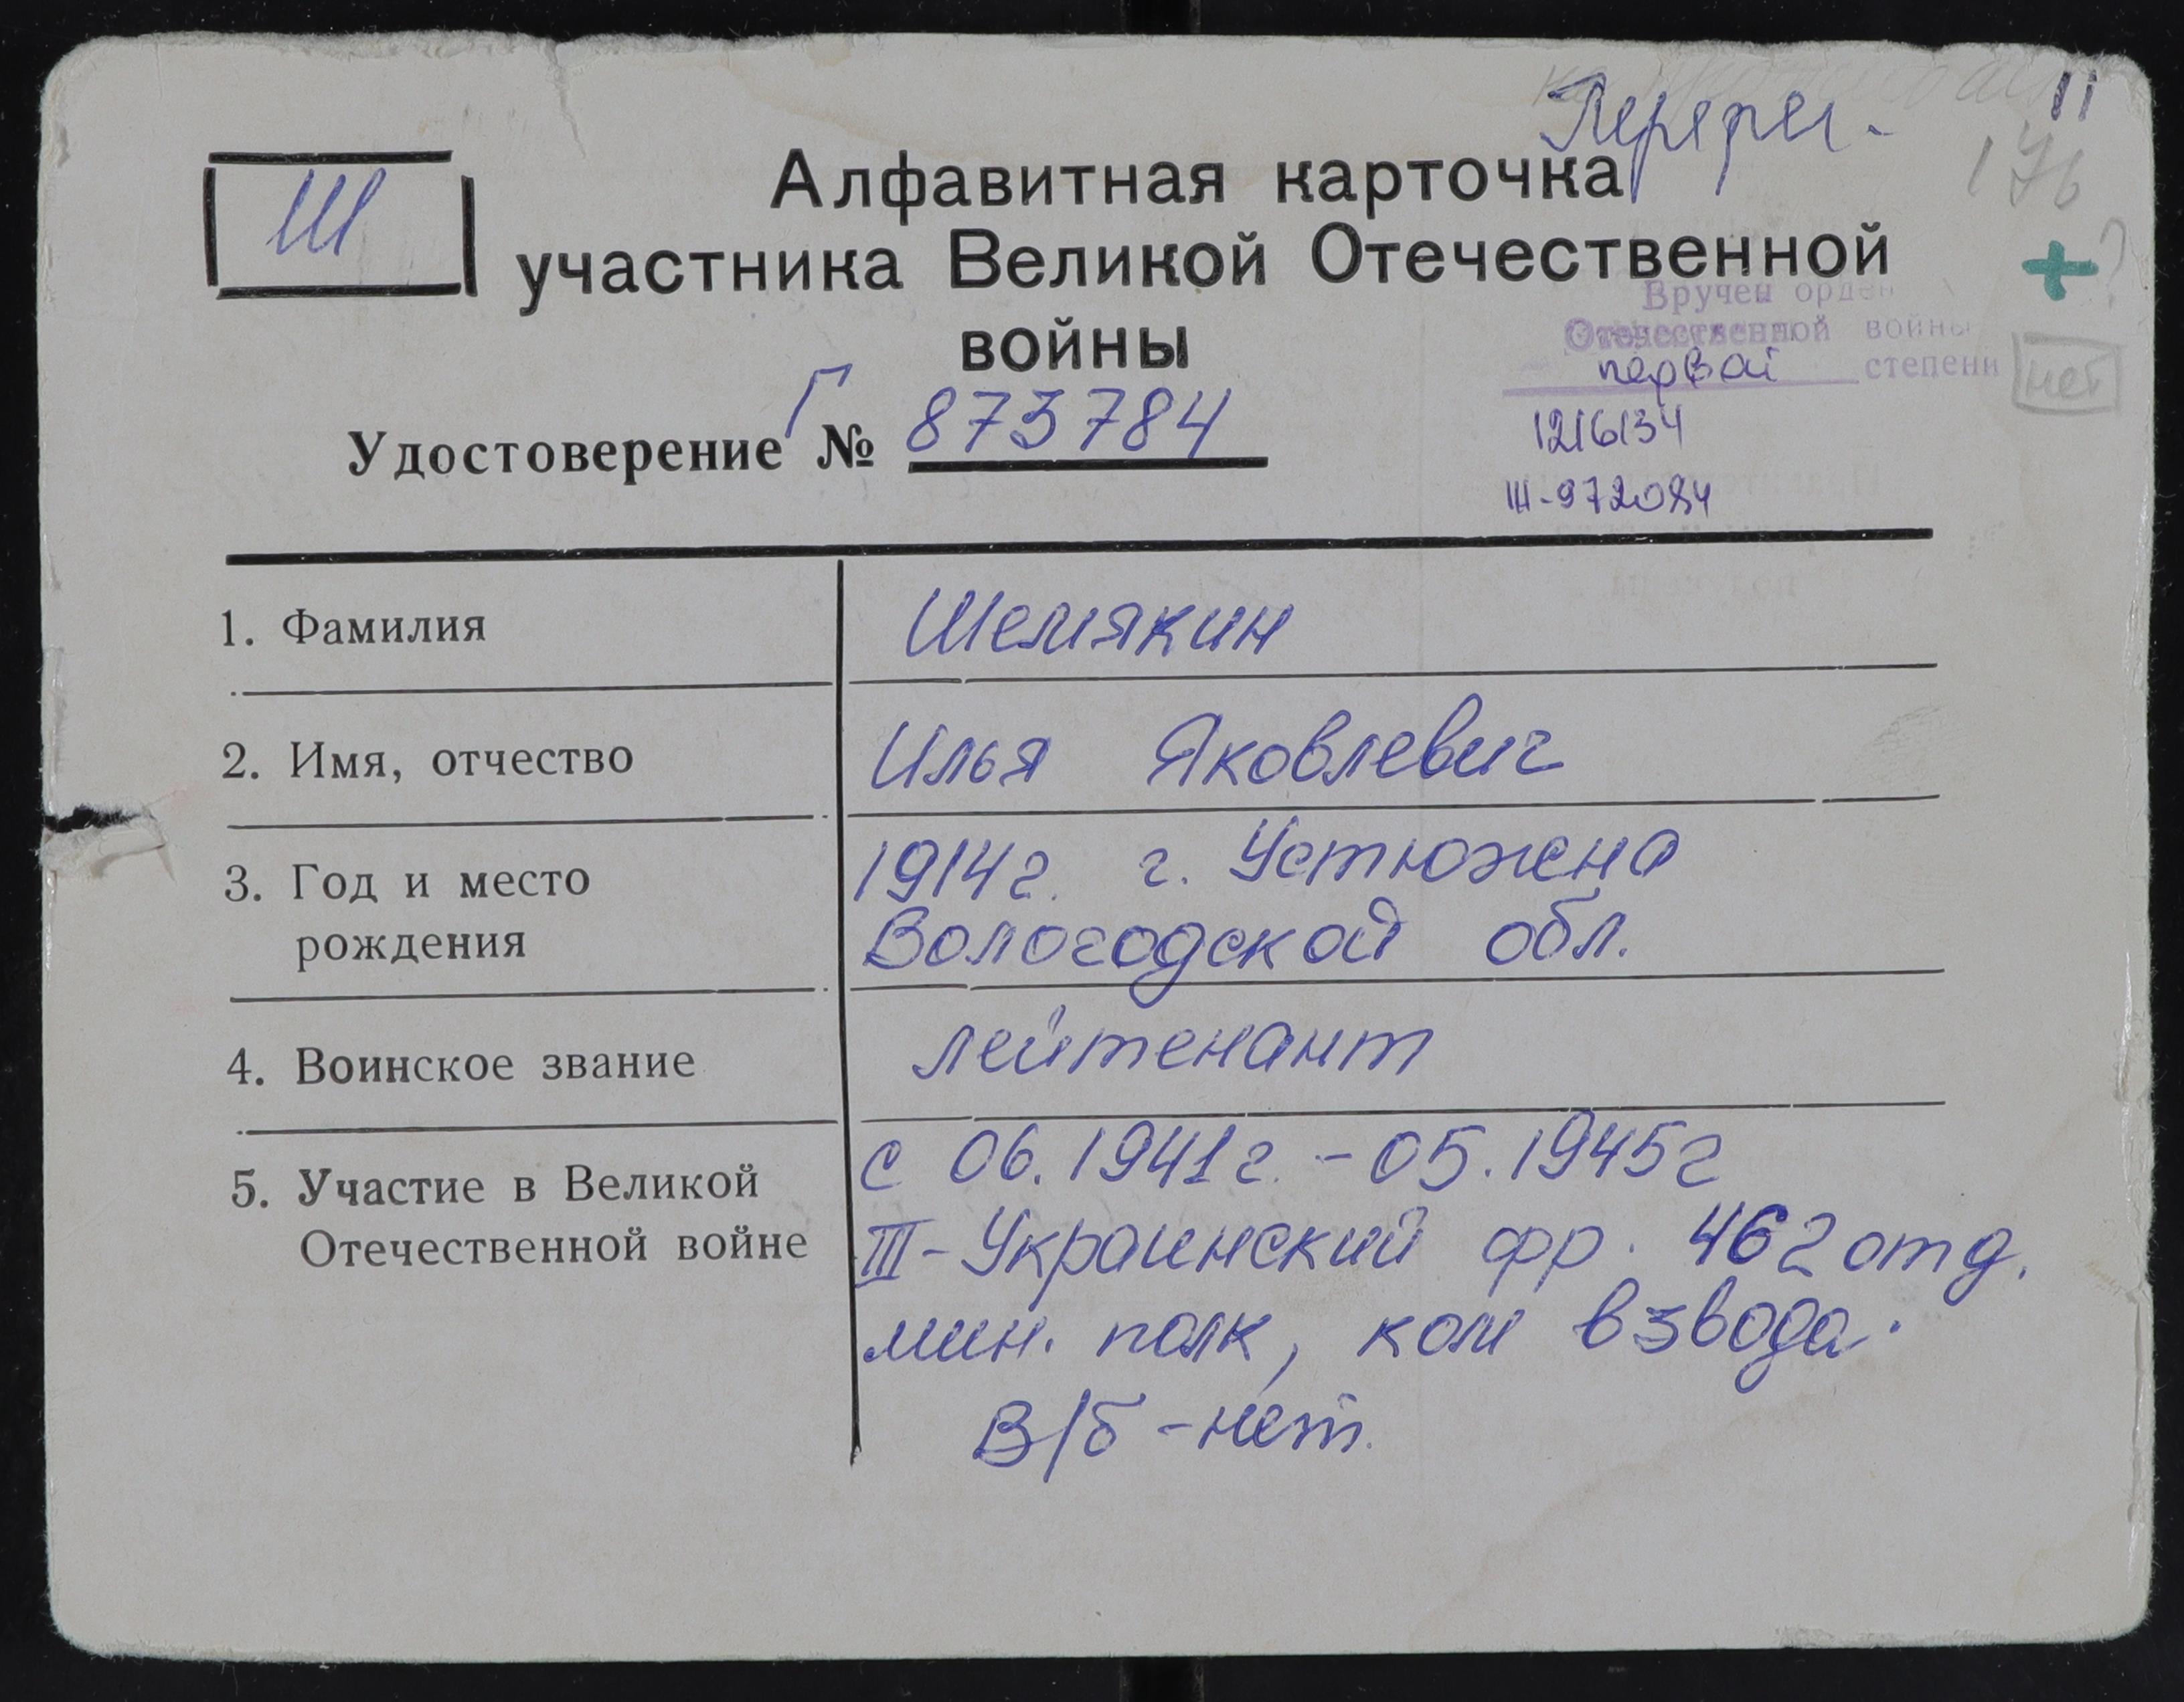 Перерег.
11
176
Ш
Алфавитная карточка
участника Великой Отечественной
войны
+ ?
Вручен орден
Отечественной войны
первой степени
нет
Удостоверение Г № 873784
1216134
III-972084
1. Фамилия Шемякин
2. Имя, отчество Илья Яковлевич
3. Год и место 1914г. г. Устюжена
рождения Вологодской обл.
4. Воинское звание лейтенант
5. Участие в Великой с 06.1941г. - 05.1945г
Отечественной войне III-Украинский фр. 462 отд.
мин. полк, ком взвода.
В/б - нет.